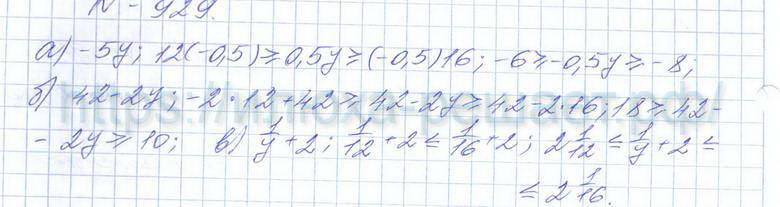 N - 929.
а) -5у; 12(-0,5)≥0,5у≥(-0,5)16; -6≥-0,5у≥-8;
б) 42-2у; -2·12+42≥42-2у≥42-2·16; 18≥42-
-2у≥10; в) 1/у+2; 1/12+2≤1/16+2; 2 1/12≤1/у+2≤
≤2 1/16.